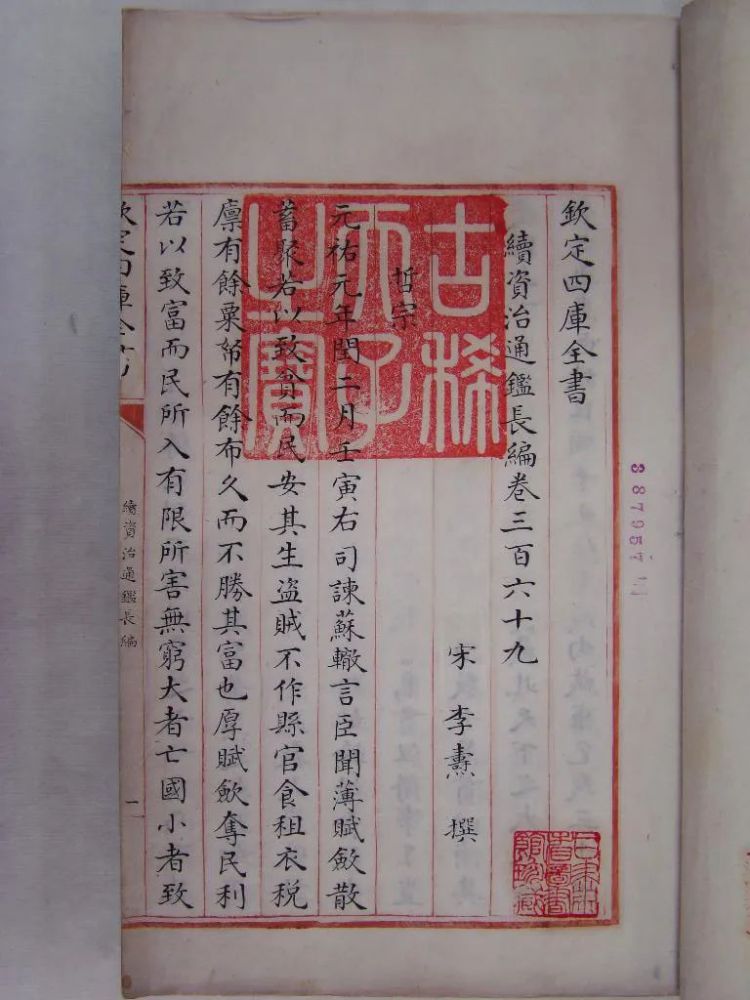 欽定四庫全書
續資治通鑑長編卷三百六十九
宋 李燾 撰
哲宗
元祐元年閏二月壬寅右司諫蘇轍言臣聞薄賦歛散
蓄聚若以致貧而民安其生盜賊不作縣官食租衣税
廪有餘粟帑有餘布久而不勝其富也厚賦歛奪民利
若以致富而民所入有限所害無窮大者亡國小者致
欽定四庫全書
續資治通鑑長編
一
古稀
天子
之寶